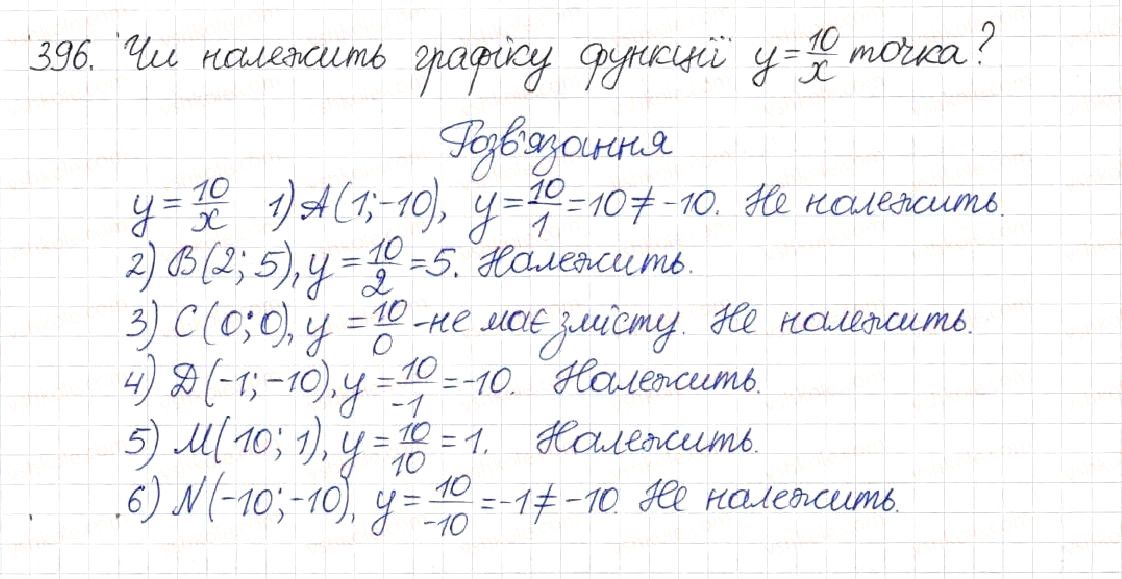 396. Чи належить графіку функції y = 10/x точка?
Розв'язання
y = 10/x 1) A(1; -10), y = 10/1 = 10 ≠ -10. Не належить.
2) B(2; 5), y = 10/2 = 5. Належить.
3) C(0; 0), y = 10/0 - не має змісту. Не належить.
4) D(-1; -10), y = 10/-1 = -10. Належить.
5) M(10; 1), y = 10/10 = 1. Належить.
6) N(-10; -10), y = 10/-10 = -1 ≠ -10. Не належить.